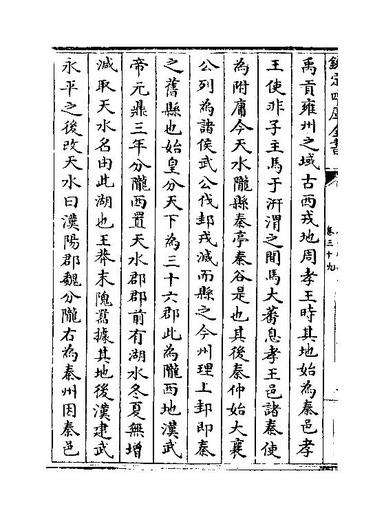 欽定四庫全書
卷三十九
禹貢雍州之域古西戎地周孝王時其地始為秦邑孝
王使非子主馬于汧渭之間馬大蕃息孝王邑諸秦使
為附庸今天水隴縣秦亭秦谷是也其後秦仲始大襄
公列為諸侯武公伐邽戎滅而縣之今州理上邽即秦
之舊縣也始皇分天下為三十六郡此為隴西地漢武
帝元鼎三年分隴西置天水郡郡前有湖水冬夏無增
減取天水名由此湖也王莽末隗囂據其地後漢建武
永平之後改天水曰漢陽郡魏分隴右為秦州因秦邑